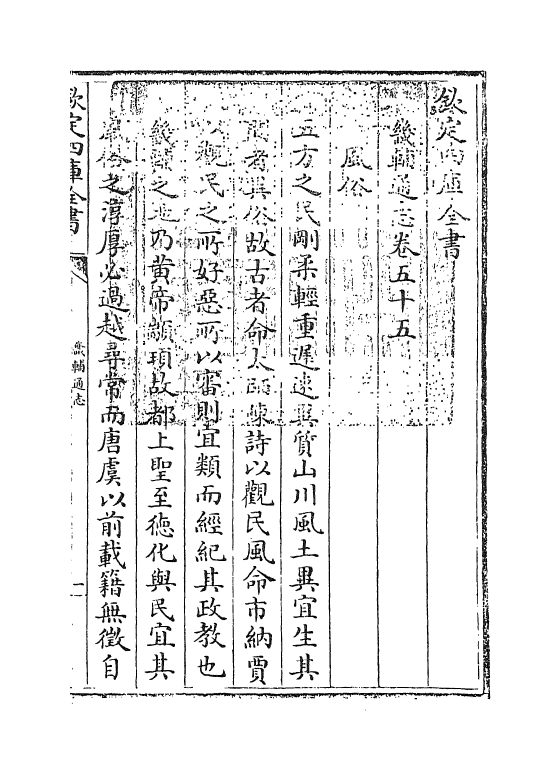 欽定四庫全書
畿輔通志卷五十五
風俗
五方之民剛柔輕重遲速異質山川風土異宜生其
間者異俗故古者命太師陳詩以觀民風命市納賈
以觀民之所好惡所以審則宜類而經紀其政教也
畿輔之地乃黄帝顓頊故都上聖至徳化與民宜其
風俗之淳厚必過越尋常而唐虞以前載籍無徴自
欽定四庫全書
畿輔通志
一